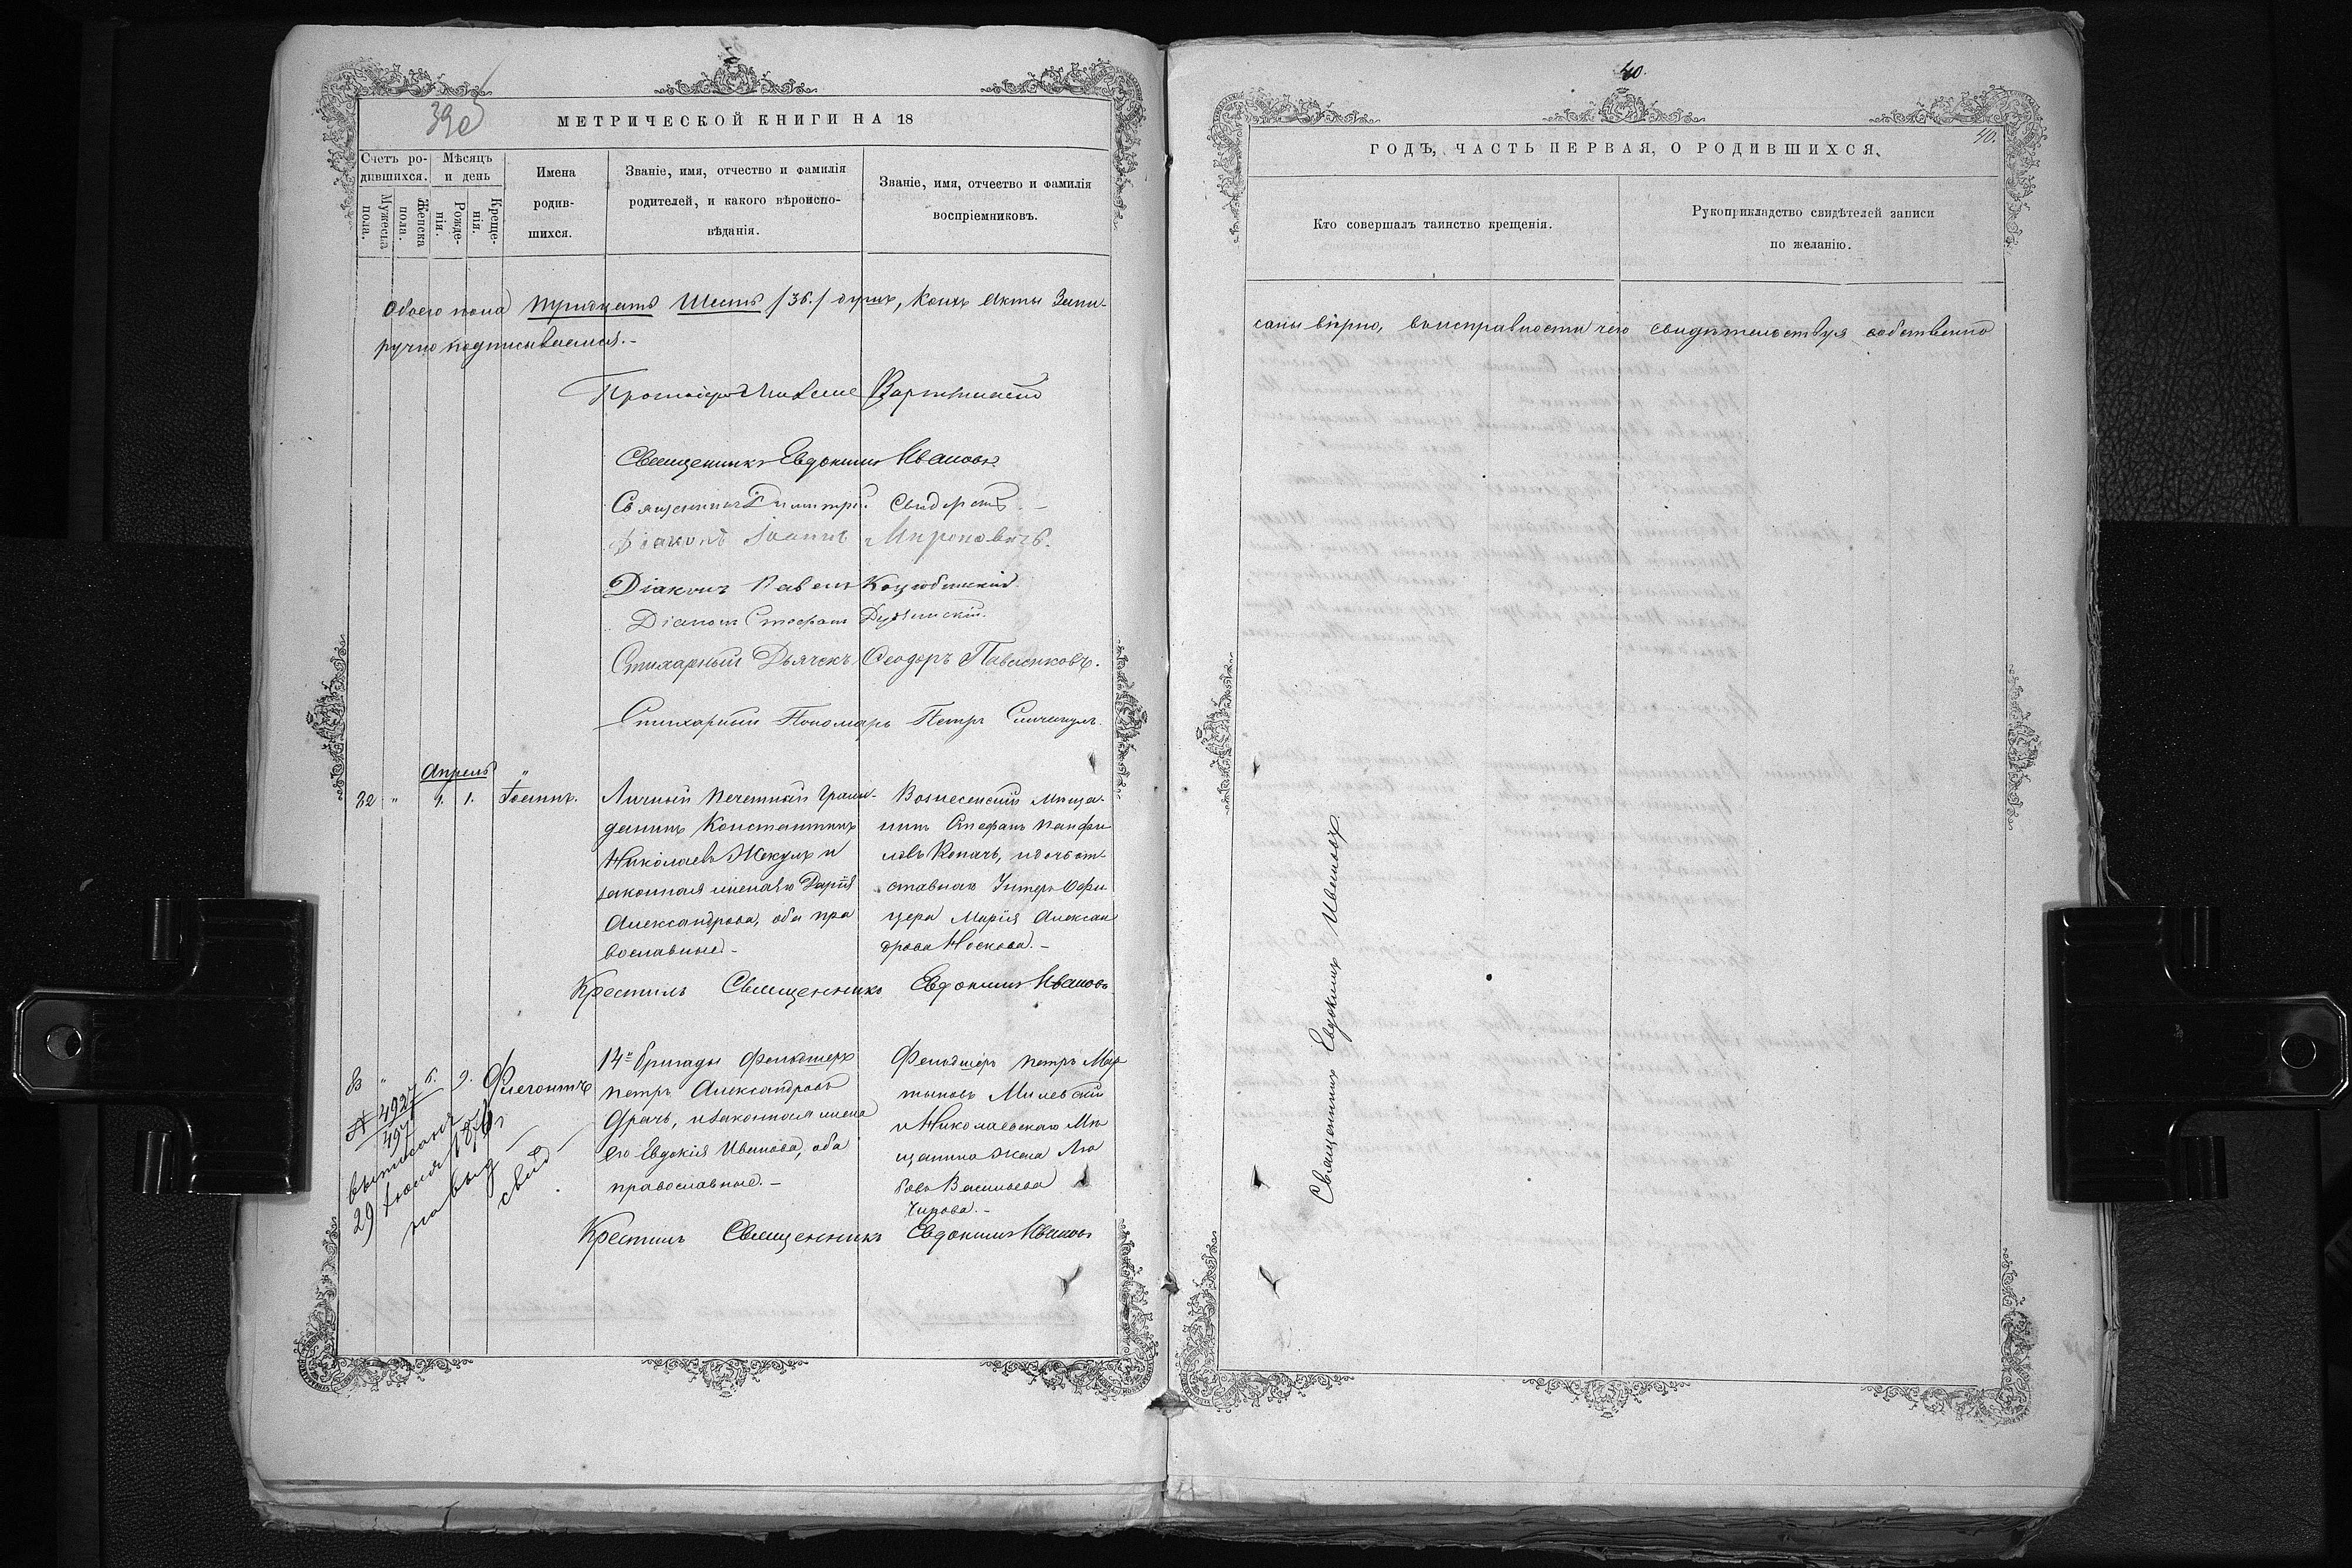 39об
МЕТРИЧЕСКОЙ КНИГИ НА 18
Счетъ ро-
дившихся.
Мѣсяцъ
и день
Мужеска
пола.
Женска
пола.
Рожде-
нія.
Креще-
нія.
Имена
родив-
шихся.
Званіе, имя, отчество и фамилія
родителей, и какого вѣроиспо-
вѣданія.
Званіе, имя, отчество и фамилія
воспріемниковъ.
Обоего пола тридцать шесть /36./ душъ, коихъ акты запи-
ручно подписываемся.-
Протоіерей
Священникъ Евдокимъ Ивановъ.
Священникъ Димитрій
Діаконъ Іоаннъ Мироновичъ.
Діаконъ Павелъ Коцюбинскій.
Діаконъ Стефанъ
Стихарный Дьячекъ Ѳеодоръ Павленковъ.
Стихарный Пономарь Петръ
Апрель
32 " 1. 1. Іоаннъ.
Личный почетный граж-
данинъ Константинъ
Николаевъ Жекулъ и
законная жена его Дарія
Александрова, оба пра
вославные.-
Вознесенскій мѣща-
нинъ Стефанъ Панфи
ловъ Копачъ, и дочь от
ставнаго Унтеръ-Офи
цера Марія Алексан
дрова Носкова.-
Крестилъ Священникъ Евдокимъ Ивановъ
33 " 6. 9. Флегонтъ
14й бригады фельдшеръ
Петръ Александровъ
Драчъ, и законная жена
его Евдокія Иванова, оба
православные.-
Фельдшеръ Петръ Мар
тыновъ Милевскій
и Николаевскаго Мѣ
щанина жена Лю
бовь Васильева
Чирова.-
№ 4927
497
выписанъ
29 Іюня
на выд
свид
Крестилъ Священникъ Евдокимъ Ивановъ
40.
40.
ГОДЪ, ЧАСТЬ ПЕРВАЯ, О РОДИВШИХСЯ.
Кто совершалъ таинство крещенія.
Рукоприкладство свидѣтелей записи
по желанію.
саны вѣрно, въ исправности чего свидѣтельствуя собственно
Священникъ Евдокимъ Ивановъ.